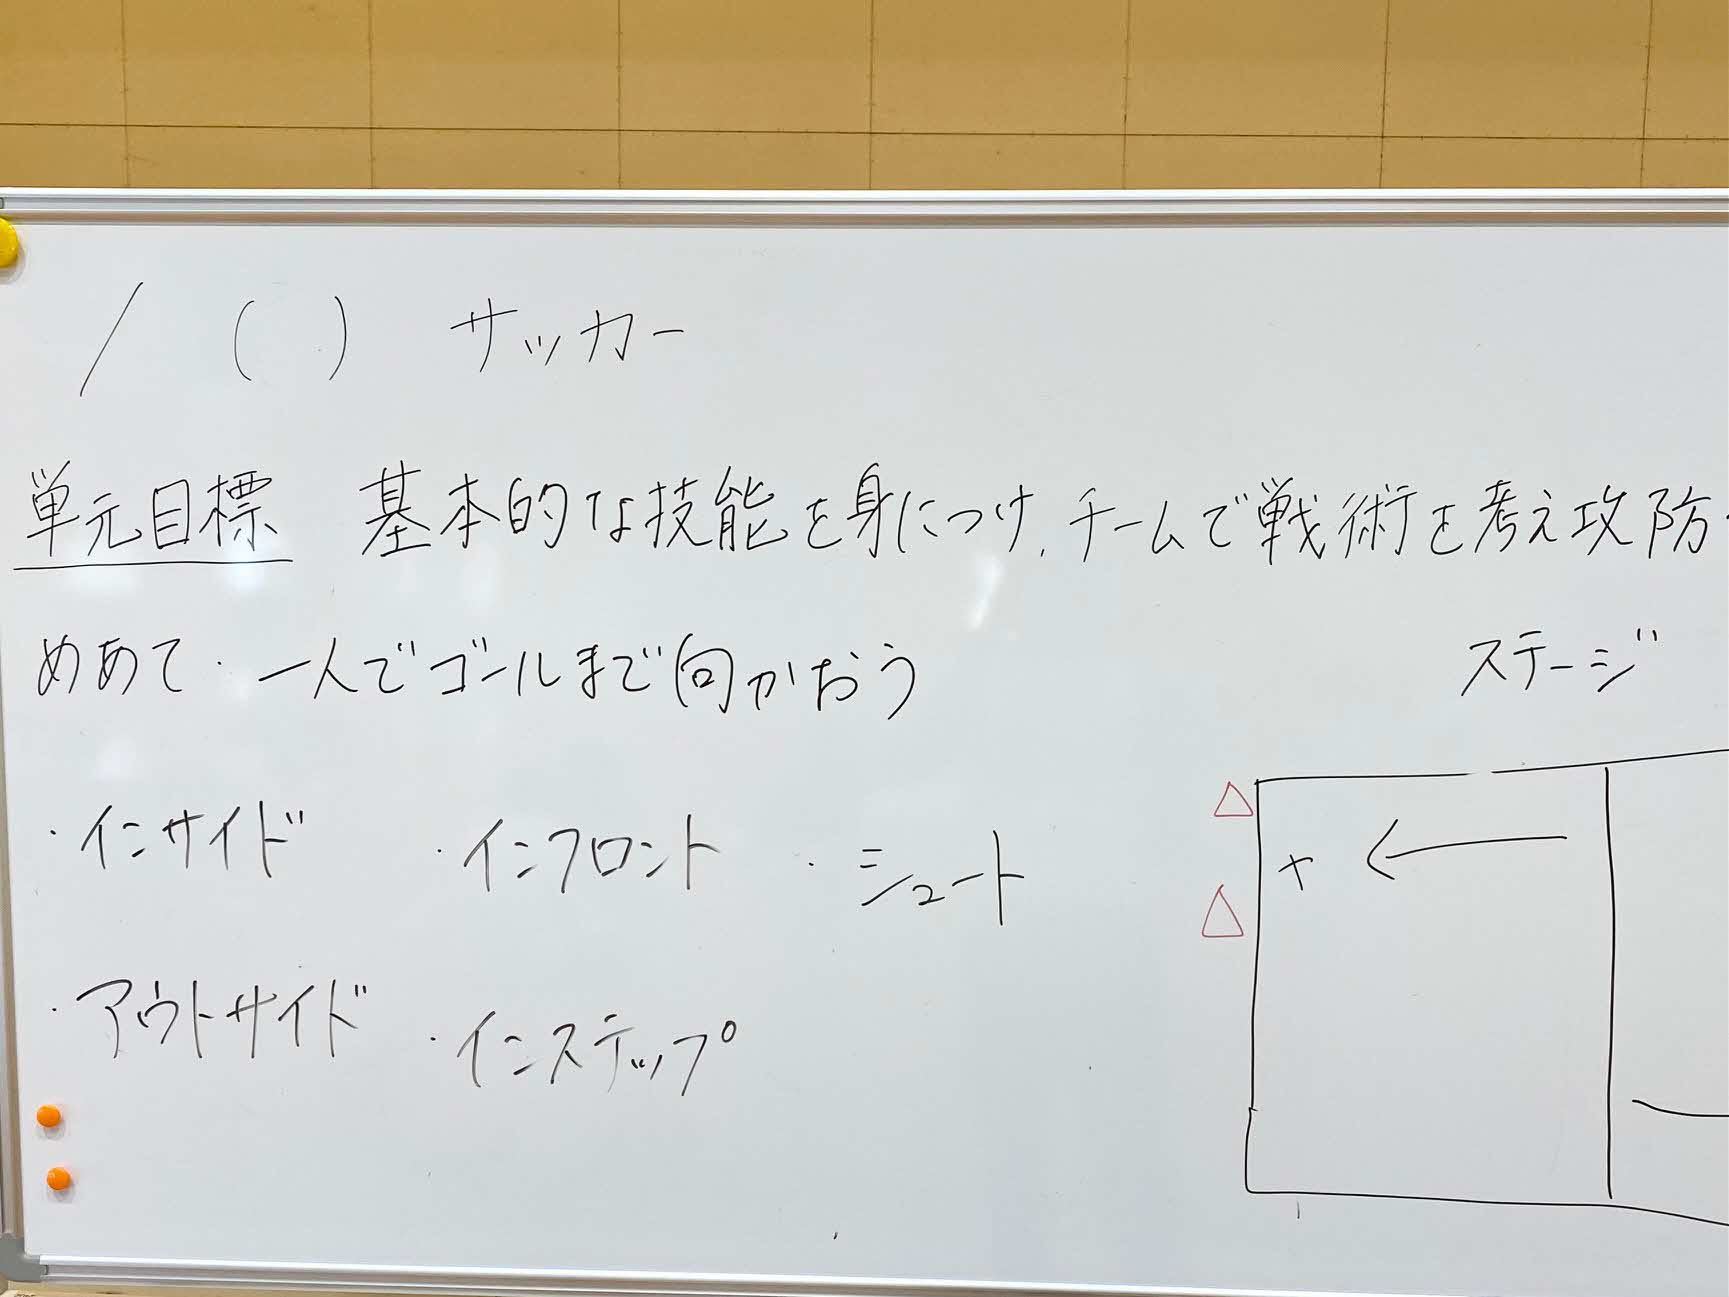 ／　(　)　サッカー
単元目標　基本的な技能を身につけ、チームで戦術を考え攻防
めあて・一人でゴールまで向かおう
ステージ
・インサイド　・インフロント　・シュート
・アウトサイド　・インステップ